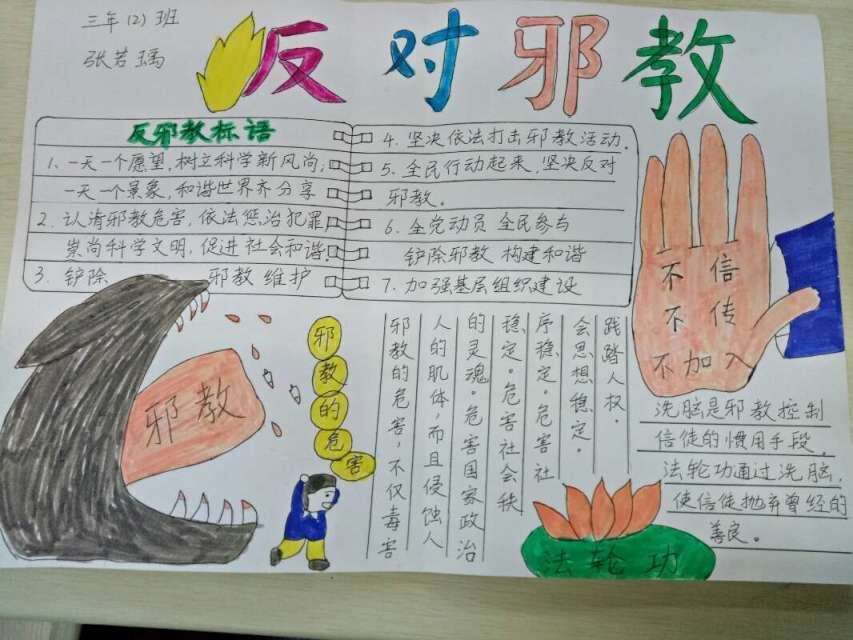 三年(2)班
张若瑀
反对邪教
反邪教标语
1、一天一个愿望,树立科学新风尚;
一天一个景象,和谐世界齐分享
2、认清邪教危害,依法惩治犯罪,
崇尚科学文明,促进社会和谐.
3、铲除 邪教 维护
4.坚决依法打击邪教活动.
5.全民行动起来,坚决反对
邪教.
6.全党动员 全民参与
铲除邪教 构建和谐
7.加强基层组织建设
不信
不传
不加入
邪教
邪教的危害
邪教的危害,不仅毒害
人的肌体,而且侵蚀人
的灵魂。危害国家政治
稳定。危害社会秩
序稳定。危害社
会思想稳定。
践踏人权.
洗脑是邪教控制
信徒的惯用手段.
法轮功通过洗脑,
使信徒抛弃曾经的
善良。
法轮功